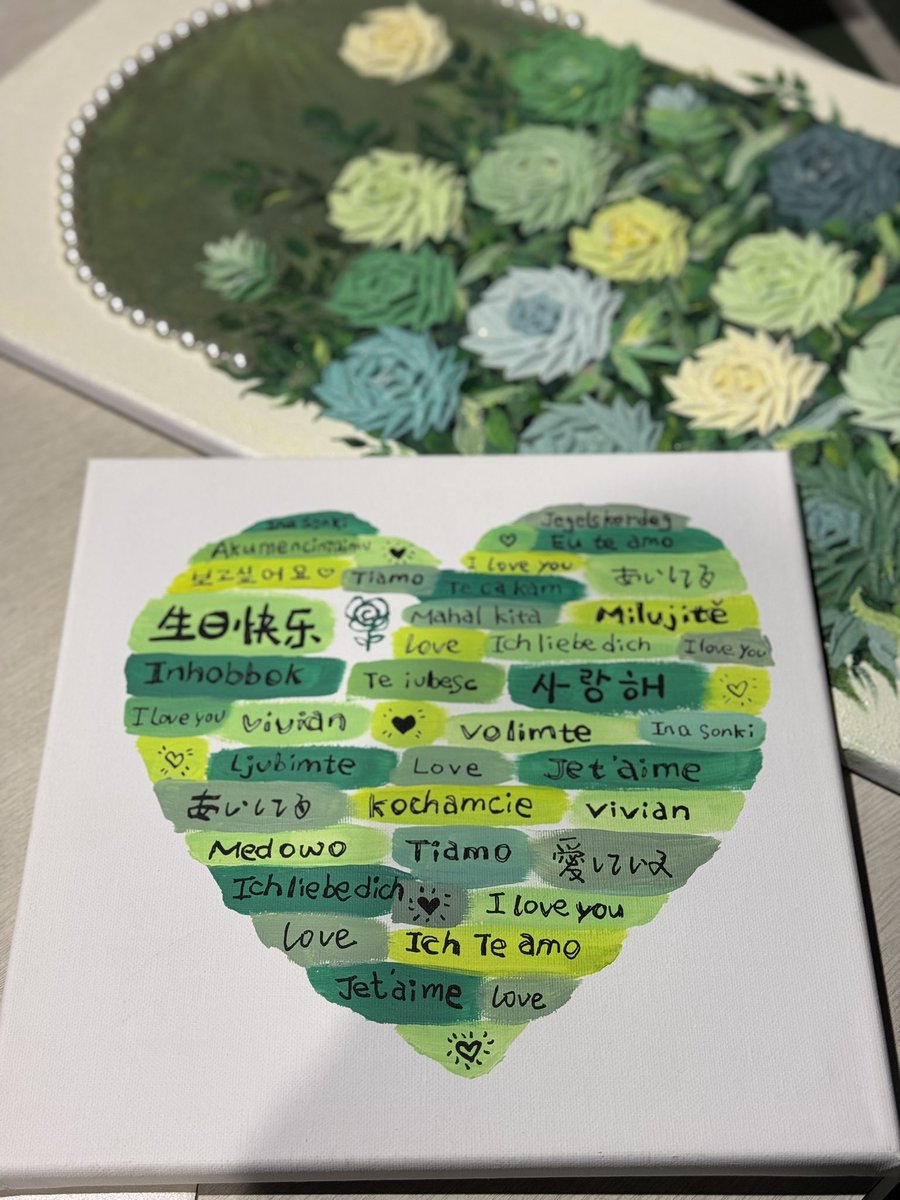 Ina Sonki Jegelskerdeg
Akumencintaimu Eu te amo
I love you
보고싶어요 Tiamo Te cakam あいしてる
Mahal kita Milujitě
生日快乐 love Ich liebe dich I love you
Inhobbok Te iubesc 사랑해
I love you vivian Volimte Ina Sonki
Ljubimte Love Jet'aime
あいしてる kochamcie vivian
Medowo Tiamo 愛している
Ich liebe dich I love you
love Ich Te amo
Jet'aime love